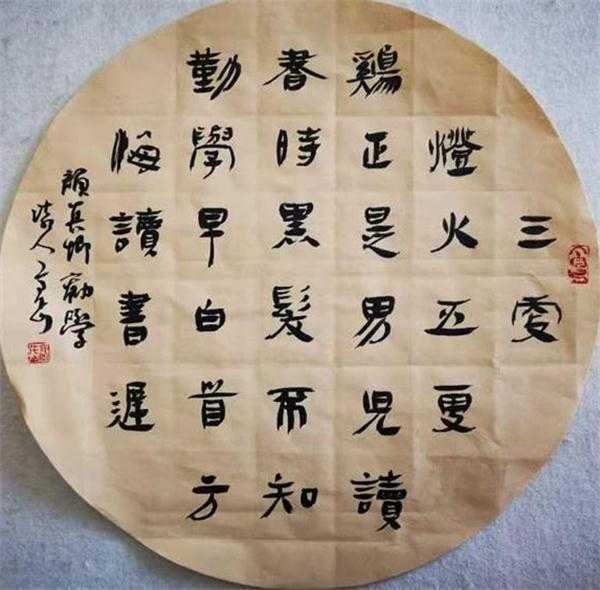 三更
燈火五更
鷄正是男兒讀
書時黑髮不知
勤學早白首方
悔讀書遲
顏真卿勸學